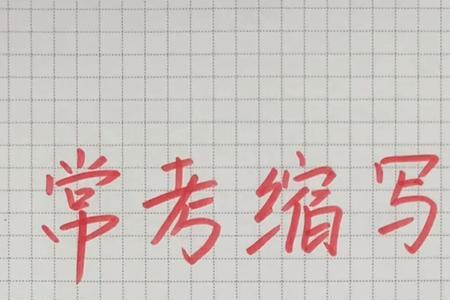 常考缩写